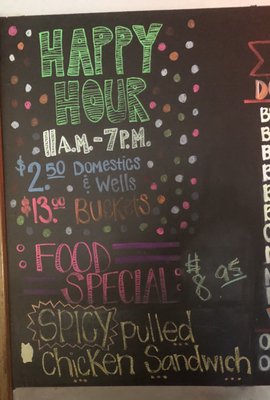 HAPPY
HOUR
11A.M.-7P.M.
$2.50 Domestics
& Wells
$13.00 Buckets
FOOD
SPECIAL
$8.95
SPICY pulled
Chicken Sandwich